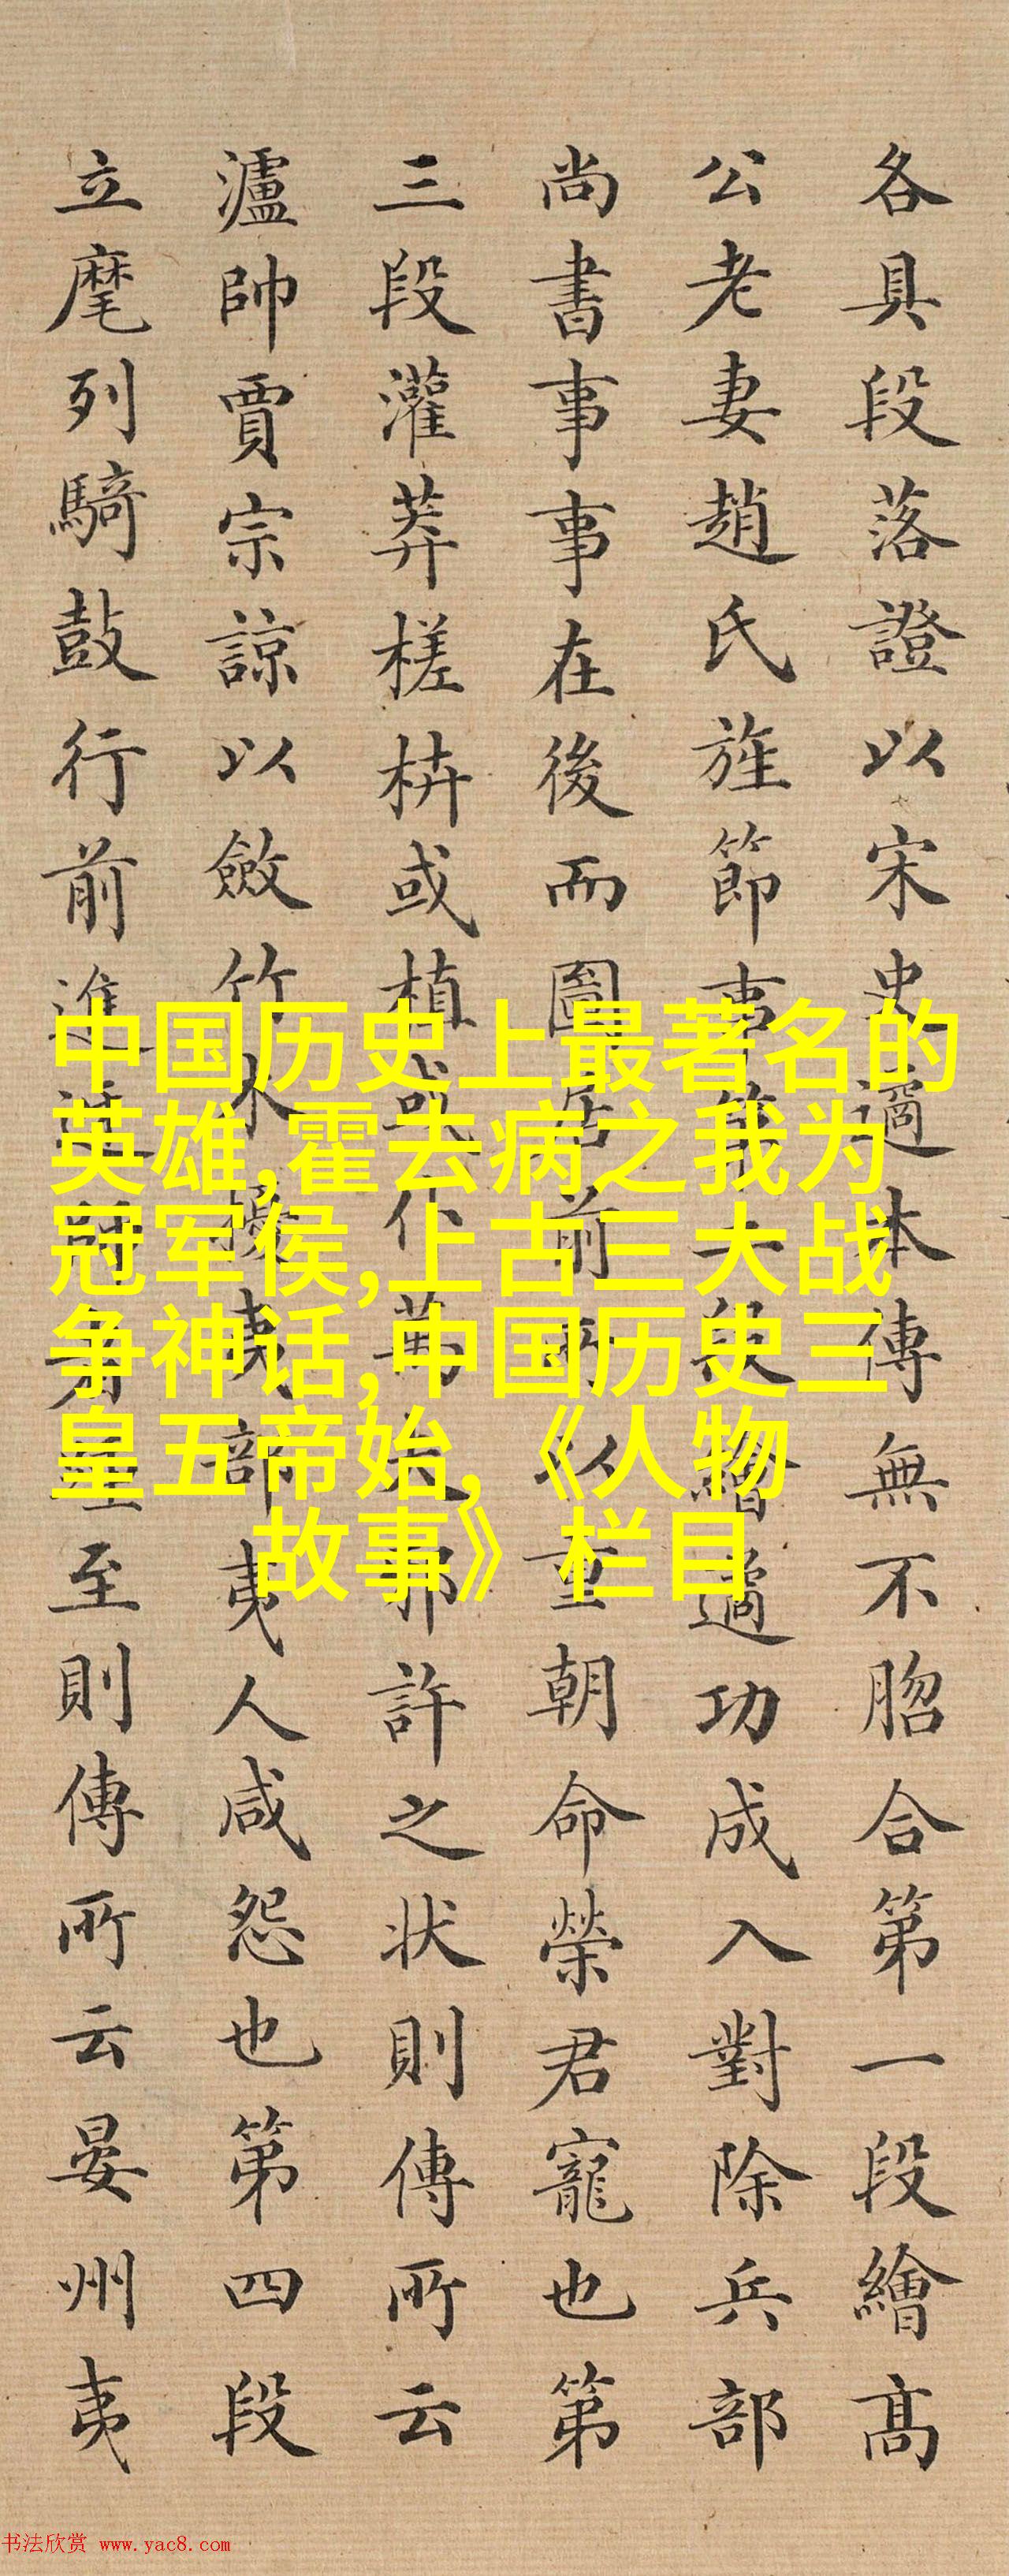 各具段落證以宋史遹本傳無不脗合第一段繪高
公老妻趙氏旌節事第二段繪遹功成入對除兵部
尚書事事在後而圖居前所以重朝命榮君寵也第
三段灌莽槎枿或植或仆萬夫邪許之状則傳所云
瀘帥賈宗諒以斂竹木擾夷部夷人咸怨也第四段
立麾列騎鼓行前進至則傳所云晏州夷
中国历史上最著名的
英雄,霍去病之我为
冠军侯,上古三大战
争神话,中国历史三
皇五帝始,《人物
故事》栏目
书法欣赏 www.yac8.com